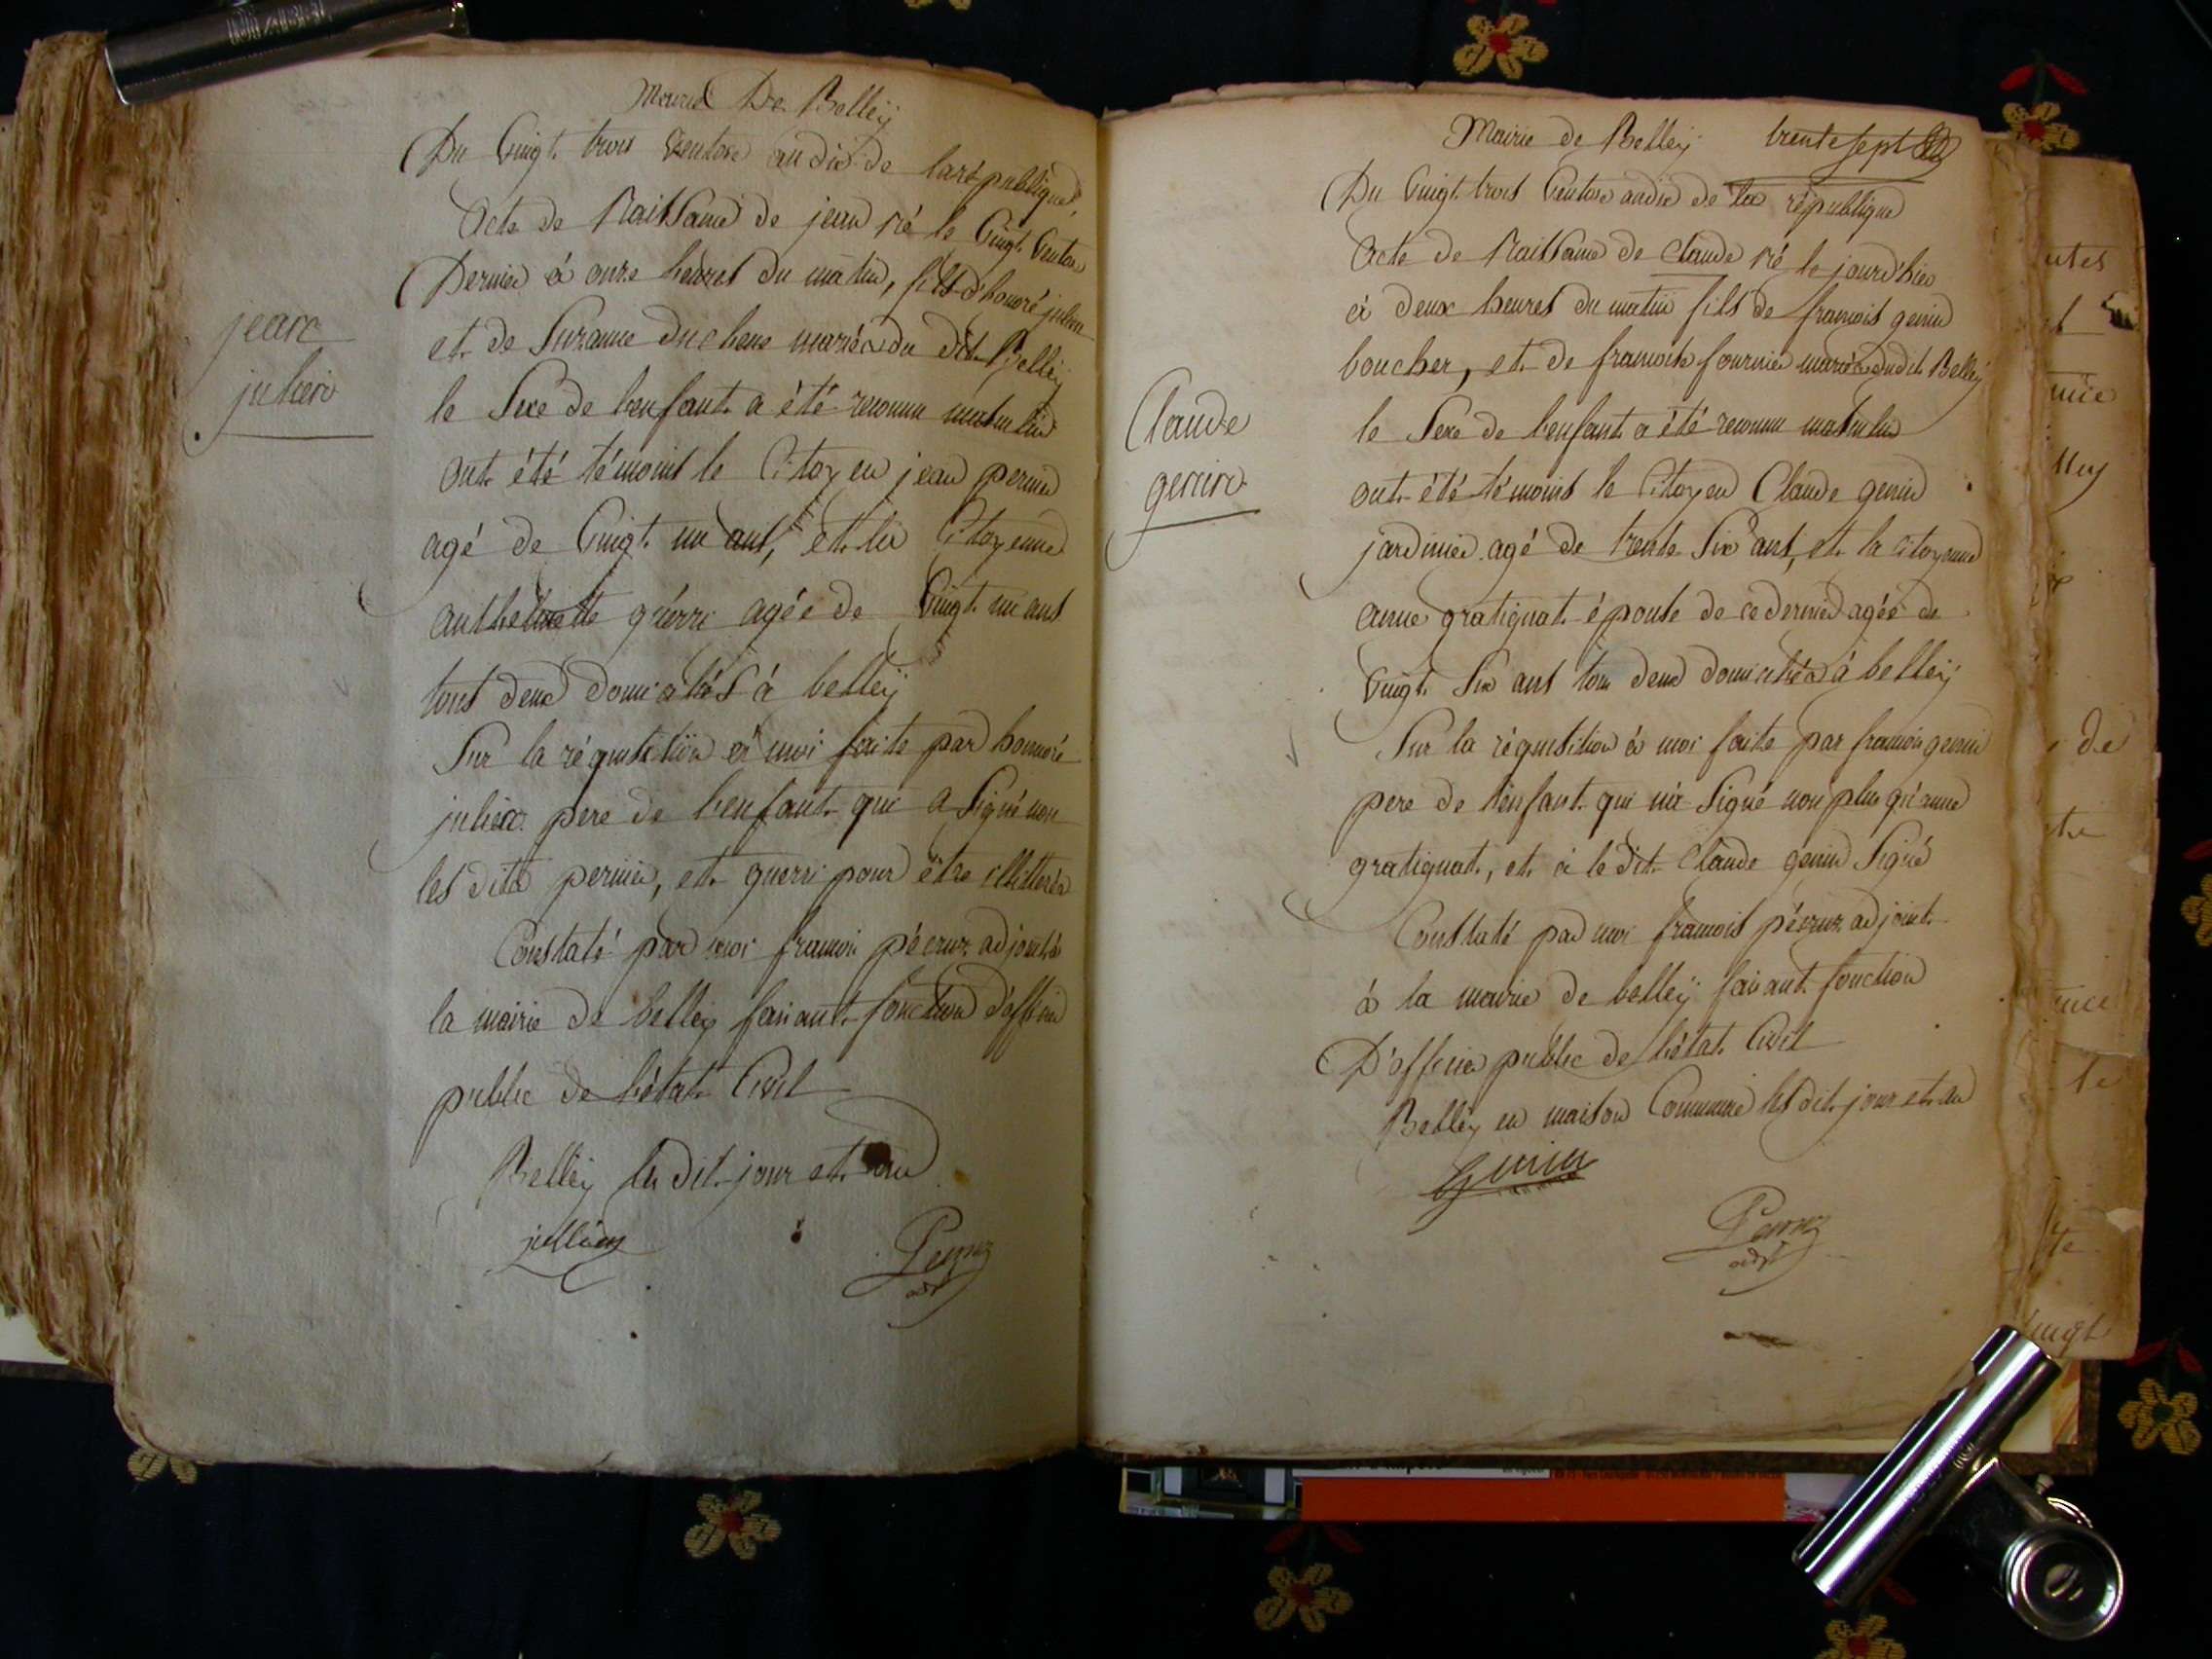 Mairie De Belleÿ
Du Vingt trois Ventose an dix de la république,
Acte de Naissance de jean né le Vingt Ventose
Dernier à onze heures du matin, fils d'honoré julien
et de Suzanne duchene mariés du dit Belleÿ
le Sexe de l'enfant a été reconnu masculin
ont été témoins le Citoyen jean
agé de Vingt un ans, et la Citoyenne
anthelmette guérri agée de Vingt un ans
tous deux domiciliés à belleÿ
Sur la réquisition à moi faite par honnoré
julien pere de l'enfant qui a Signé non
les dits, et guerri pour être illittérés
Constaté par moi francois pécruz adjoint à
la mairie de belley faisant fonction d'officier
public de l'état Civil
Belleÿ les dit jour et an
jullien
adjt
jean
julien
Mairie de Belleÿ trente sept
Du Vingt trois Ventose an dix de la république
Acte de Naissance de Claude né le jourd'hier
à deux heures du matin fils de francois genin
boucher, et de francoise fournier mariés du dit Belleÿ
le Sexe de l'enfant a été reconnu masculin
ont été témoins le Citoyen Claude genin
jardinier agé de trente Six ans, et la citoyenne
anne gratignat épouse de ce dernier agée de
Vingt Six ans tous deux domiciliés à belleÿ
Sur la réquisition à moi faite par francois genin
pere de l'enfant qui n'a Signé non plus qu'anne
gratignat, et à le dit Claude genin Signé
Constaté par moi francois pécruz adjoint
à la mairie de belleÿ faisant fonction
D'officier public de l'état Civil
Belleÿ en maison Commune les dit jour et an
Genin
adjt
Claude
genin
de
te
vingt